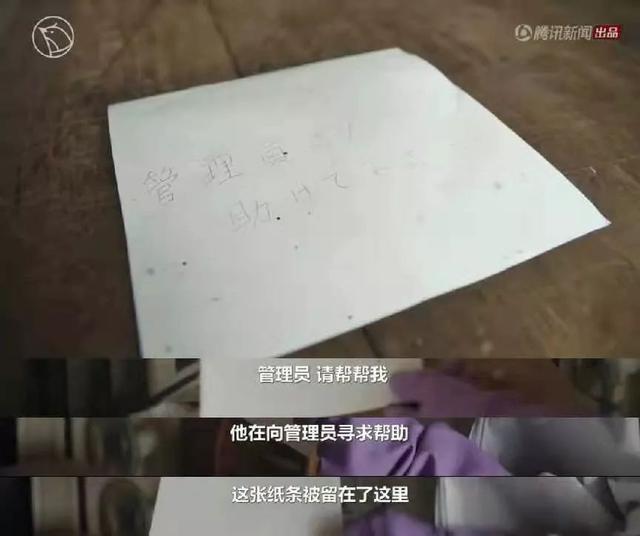 腾讯新闻 出品
管理員
助けて
管理员 请帮帮我
他在向管理员寻求帮助
这张纸条被留在了这里